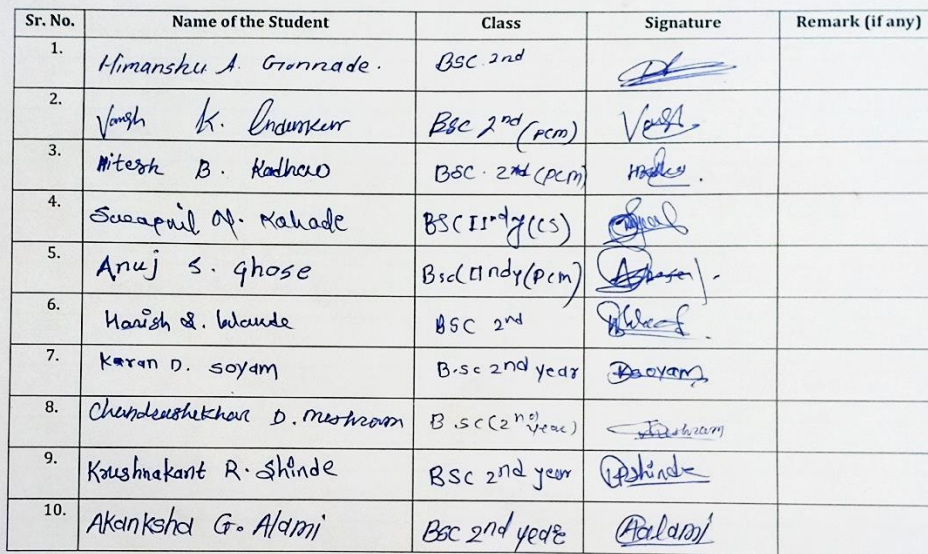 Sr. No. Name of the Student Class Signature Remark (if any)
1. Himanshu A. Gonnade. BSC 2nd
2. Vansh K. BSC 2nd (PCM) Vansh
3. Hitesh B. Kadhao BSC. 2nd (PCM)
4. Swapnil N. Kahade BSC IIndy (CS)
5. Anuj S. Ghose Bsc(IIndy(PCM)
6. Harish BSC 2nd
7. Karan D. Soyam B.sc 2nd year Dsoyam
8. Chandrashekhar D. Meshram B.sc (2nd year) Meshram
9. Krushnakant R. Shinde BSC 2nd year Shinde
10. Akanksha G. Alami BSC 2nd year Aalami